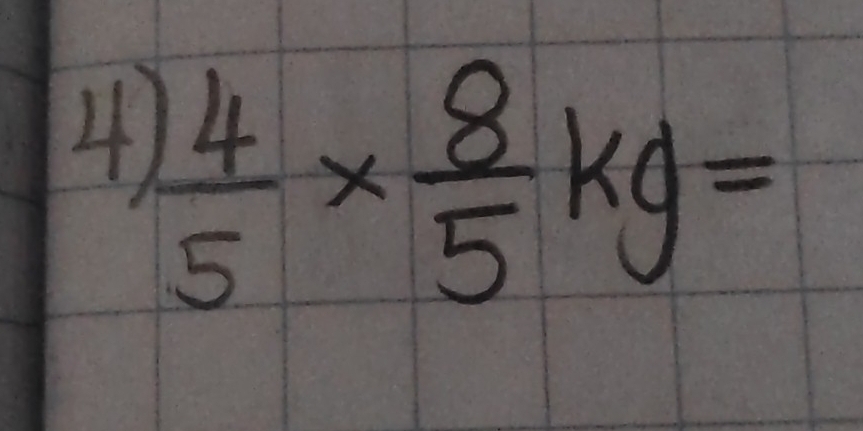 4) 4/5 × 8/5 kg =